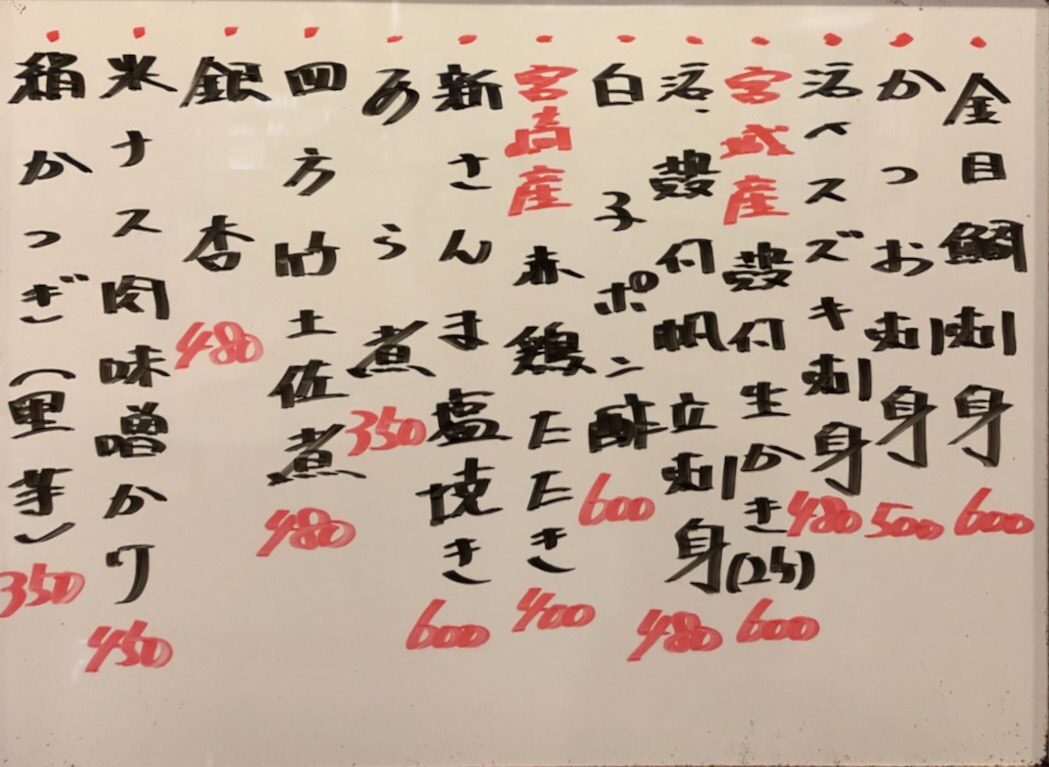 金目鯛刺身 600
かつお刺身 500
活〆スズキ刺身 480
宮城産殻付生かき(2ケ) 600
活、殻付帆立刺身 480
白子ポン酢 600
宮崎産赤鶏たたき 400
新さんま塩焼き 600
あら煮 350
四方竹土佐煮 480
銀杏 480
米ナス肉味噌かけ 450
絹かつぎ(里芋) 350